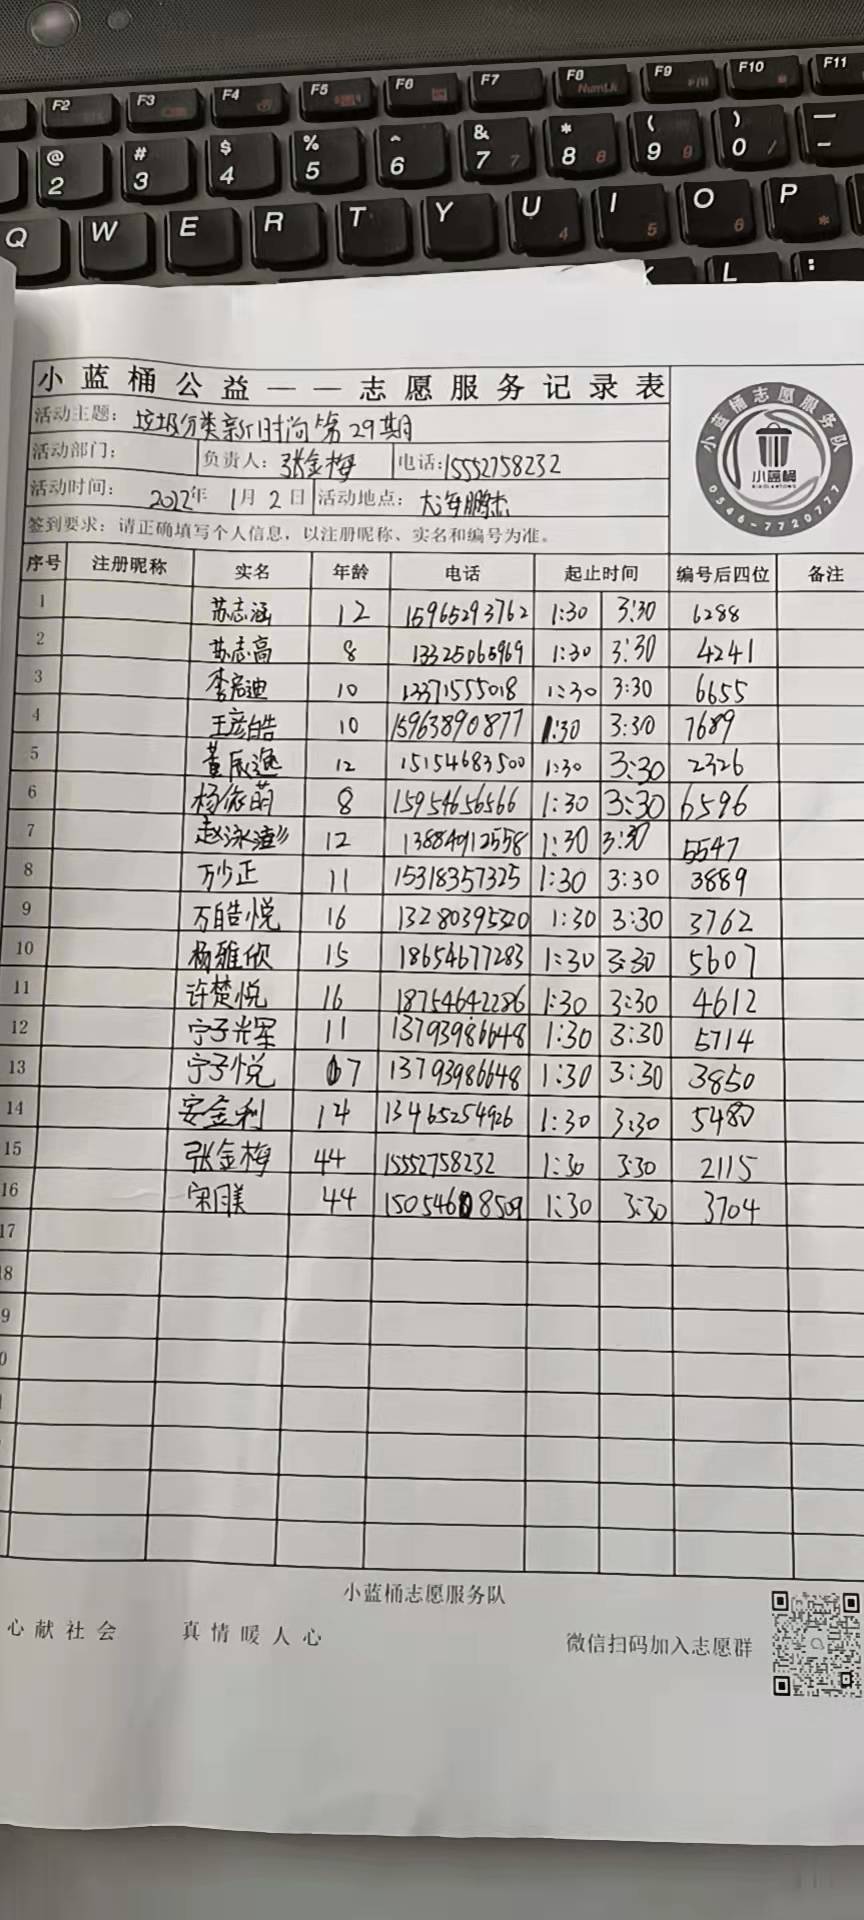 F2 F3 F4 F5 F6 F7 F8 F9 F10 F11
NumLk
@ # $ % ^ & * ( ) —
2 3 4 5 6 7 7 8 8 9 9 0 / -
Q W E R T Y U 4 I 5 O 6 P *
K L :
小蓝桶公益——志愿服务记录表
活动主题: 垃圾分类新时尚第29期
活动部门: 负责人: 张金梅 电话: 15552758232
活动时间: 2022年 1月 2日 活动地点:
签到要求: 请正确填写个人信息, 以注册昵称、实名和编号为准。
小蓝桶志愿服务队
小蓝桶
XIAOLANTONG
0546-7720777
序号 注册昵称 实名 年龄 电话 起止时间 编号后四位 备注
1 苏志涵 12 15965293762 1:30 3:30 6288
2 苏志高 8 13325065969 1:30 3:30 4241
3 李启迪 10 13371555018 1:30 3:30 6655
4 王彦皓 10 15963890877 1:30 3:30 7689
5 董辰逸 12 15154683500 1:30 3:30 2326
6 杨依萌 8 15954656566 1:30 3:30 6596
7 12 13884912558 1:30 3:30 5547
8 万少正 11 15318357325 1:30 3:30 3889
9 万皓悦 16 13280395320 1:30 3:30 3762
10 杨雅欣 15 18654677283 1:30 3:30 5607
11 许楚悦 16 18754642286 1:30 3:30 4612
12 宁子光军 11 13793986648 1:30 3:30 5714
13 宁子悦 7 13793986648 1:30 3:30 3850
14 安金利 14 13465254926 1:30 3:30 5480
15 张金梅 44 15552758232 1:30 3:30 2115
16 宋月美 44 15054608509 1:30 3:30 3704
17
18
9
0
小蓝桶志愿服务队
心献社会 真情暖人心
微信扫码加入志愿群